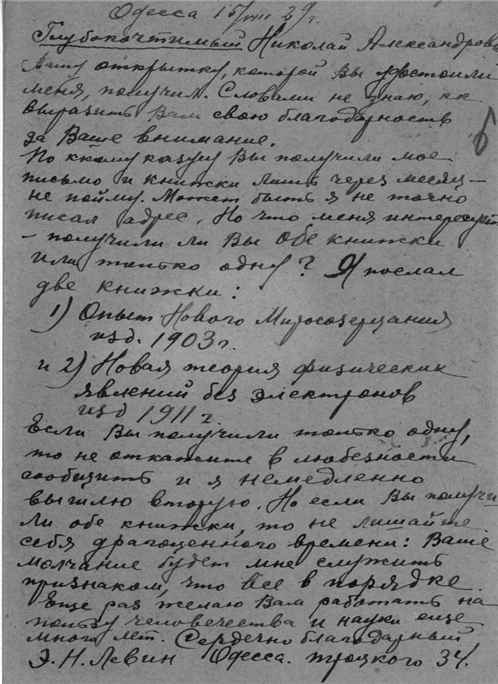 Одесса 15/VIII 29 г.
Глубокочтимый Николай Александрови
Вашу открытку, которой Вы удостоили
меня, получил. Словами не знаю, как
выразить Вам свою благодарность
за Ваше внимание.
По какому казусу Вы получили мое
письмо и книжки лишь через месяц —
не пойму. Может быть я не точно
писал адрес. Но что меня интересует
— получили ли Вы обе книжки
или только одну? Я послал
две книжки:
1) Опыт Нового Миросозерцания
изд. 1903 г.
и 2) Новая теория физических
явлений без электронов
изд 1911 г.
Если Вы получили только одну,
то не откажите в любезности
сообщить и я немедленно
вышлю вторую. Но если Вы получи
ли обе книжки, то не лишайте
себя драгоценного времени: Ваше
молчание будет мне служить
признаком, что все в порядке.
Еще раз желаю Вам работать на
пользу человечества и науки еще
много лет. Сердечно благодарный
Э. Н. Левин Одесса. Троцкого 34.